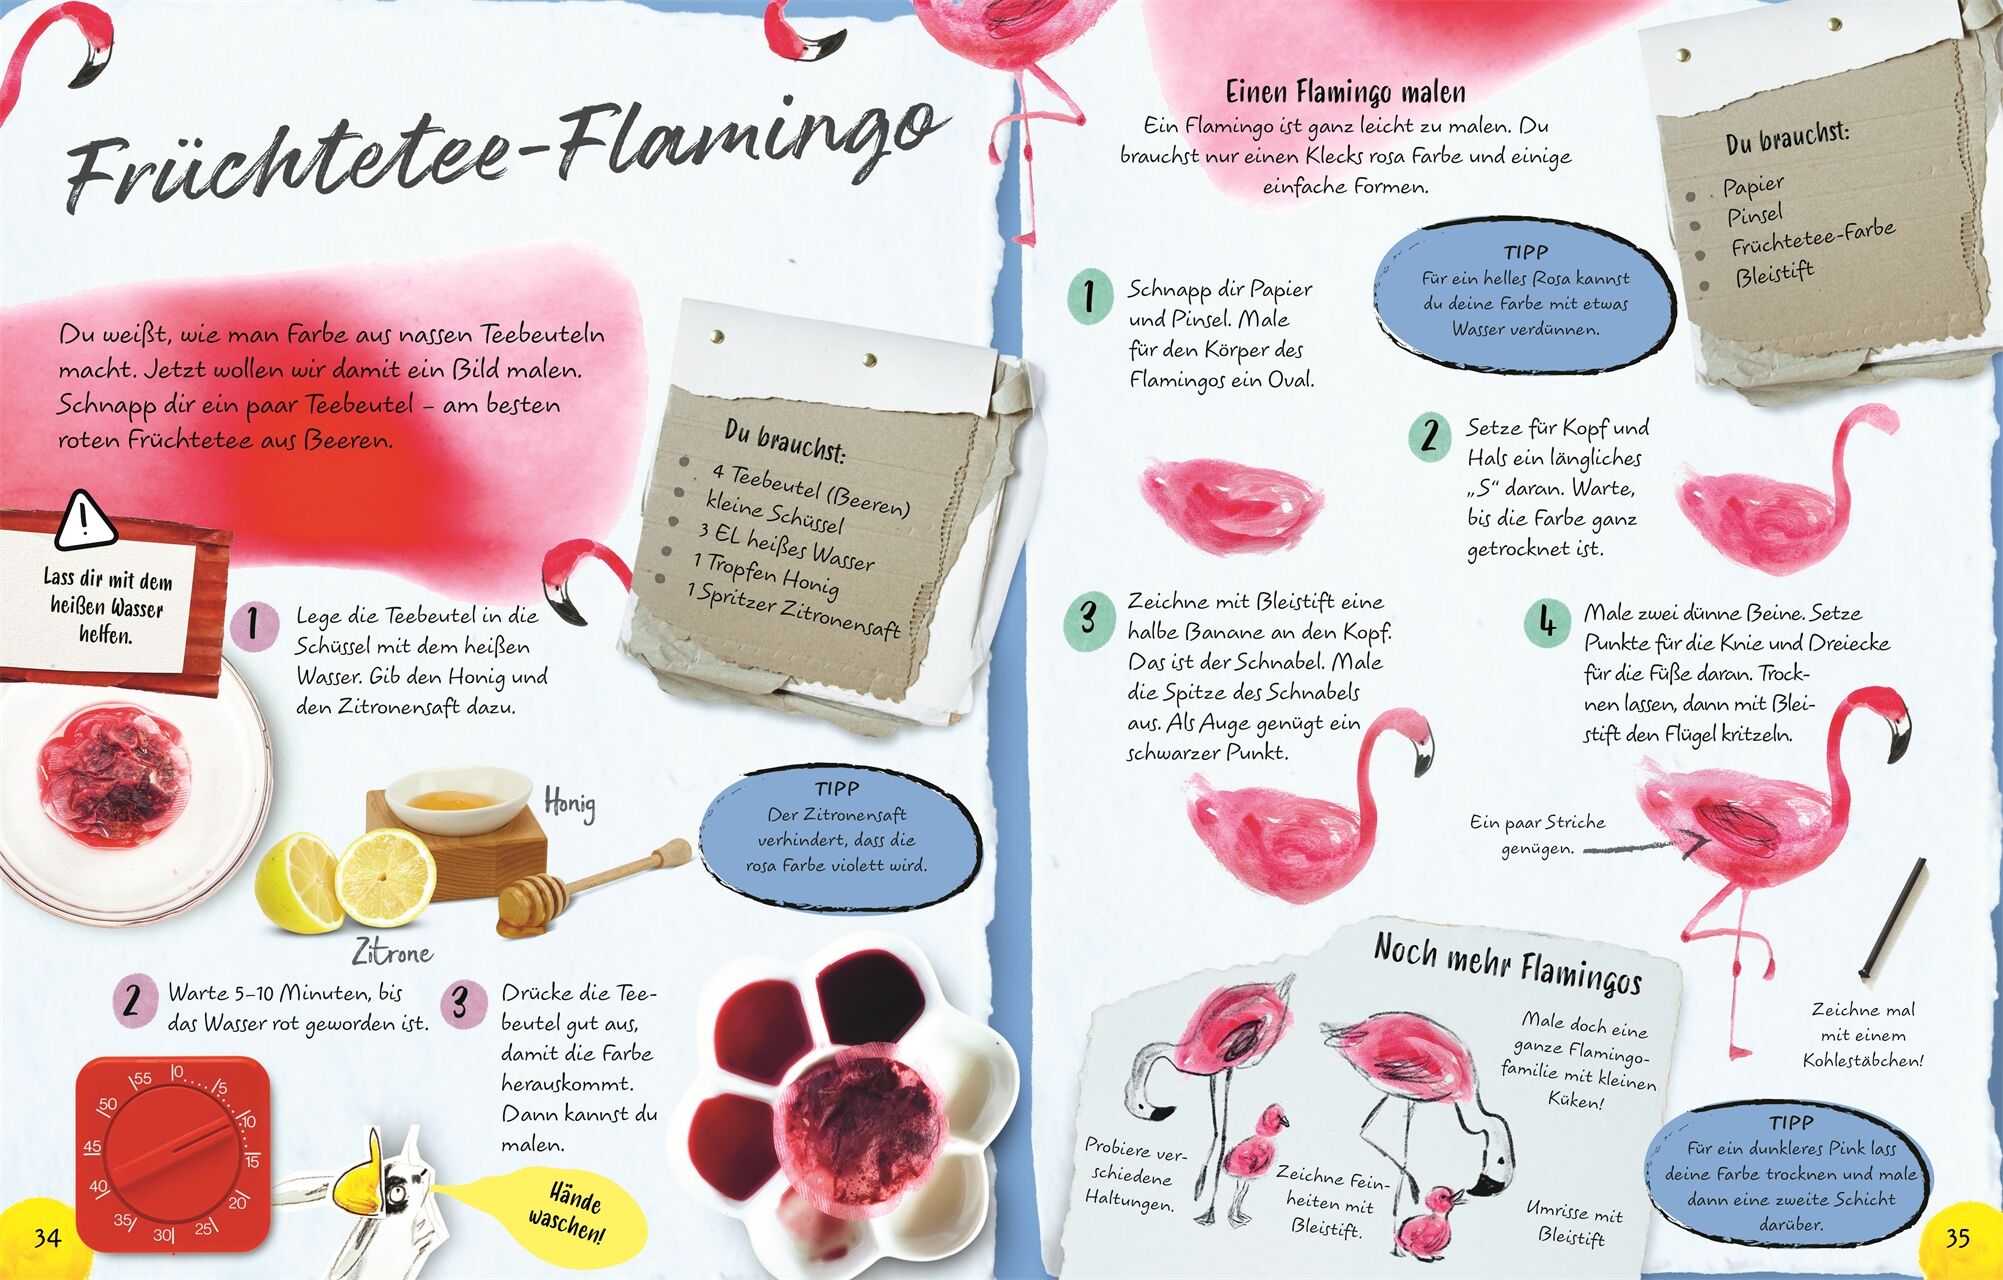 Früchtetee-Flamingo
Du weißt, wie man Farbe aus nassen Teebeuteln
macht. Jetzt wollen wir damit ein Bild malen.
Schnapp dir ein paar Teebeutel – am besten
roten Früchtetee aus Beeren.
Du brauchst:
4 Teebeutel (Beeren)
kleine Schüssel
3 EL heißes Wasser
1 Tropfen Honig
1 Spritzer Zitronensaft
!
Lass dir mit dem
heißen Wasser
helfen.
1
Lege die Teebeutel in die
Schüssel mit dem heißen
Wasser. Gib den Honig und
den Zitronensaft dazu.
Honig
Zitrone
TIPP
Der Zitronensaft
verhindert, dass die
rosa Farbe violett wird.
2
Warte 5–10 Minuten, bis
das Wasser rot geworden ist.
3
Drücke die Tee-
beutel gut aus,
damit die Farbe
herauskommt.
Dann kannst du
malen.
0
5
10
15
20
25
30
35
40
45
50
55
Hände
waschen!
34
Einen Flamingo malen
Ein Flamingo ist ganz leicht zu malen. Du
brauchst nur einen Klecks rosa Farbe und einige
einfache Formen.
Du brauchst:
Papier
Pinsel
Früchtetee-Farbe
Bleistift
TIPP
Für ein helles Rosa kannst
du deine Farbe mit etwas
Wasser verdünnen.
1
Schnapp dir Papier
und Pinsel. Male
für den Körper des
Flamingos ein Oval.
2
Setze für Kopf und
Hals ein längliches
„S“ daran. Warte,
bis die Farbe ganz
getrocknet ist.
3
Zeichne mit Bleistift eine
halbe Banane an den Kopf.
Das ist der Schnabel. Male
die Spitze des Schnabels
aus. Als Auge genügt ein
schwarzer Punkt.
4
Male zwei dünne Beine. Setze
Punkte für die Knie und Dreiecke
für die Füße daran. Trock-
nen lassen, dann mit Blei-
stift den Flügel kritzeln.
Ein paar Striche
genügen.
Zeichne mal
mit einem
Kohlestäbchen!
Noch mehr Flamingos
Male doch eine
ganze Flamingo-
familie mit kleinen
Küken!
Probiere ver-
schiedene
Haltungen.
Zeichne Fein-
heiten mit
Bleistift.
Umrisse mit
Bleistift
TIPP
Für ein dunkleres Pink lass
deine Farbe trocknen und male
dann eine zweite Schicht
darüber.
35